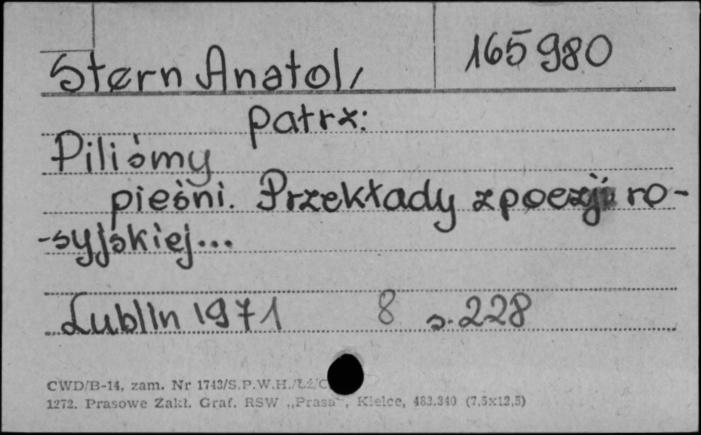 Stern Anatol, 165980
patrz:
Piliśmy
pieśni. Przekłady z poezji ro-
-syjskiej...
Lublin 1971 8 s. 228
CWD/B-14, zam. Nr 1743/S.P.W.H.
1272. Prasowe Zakł. Graf. RSW „Prasa", Kielce, 483.340 (7,5x12,5)